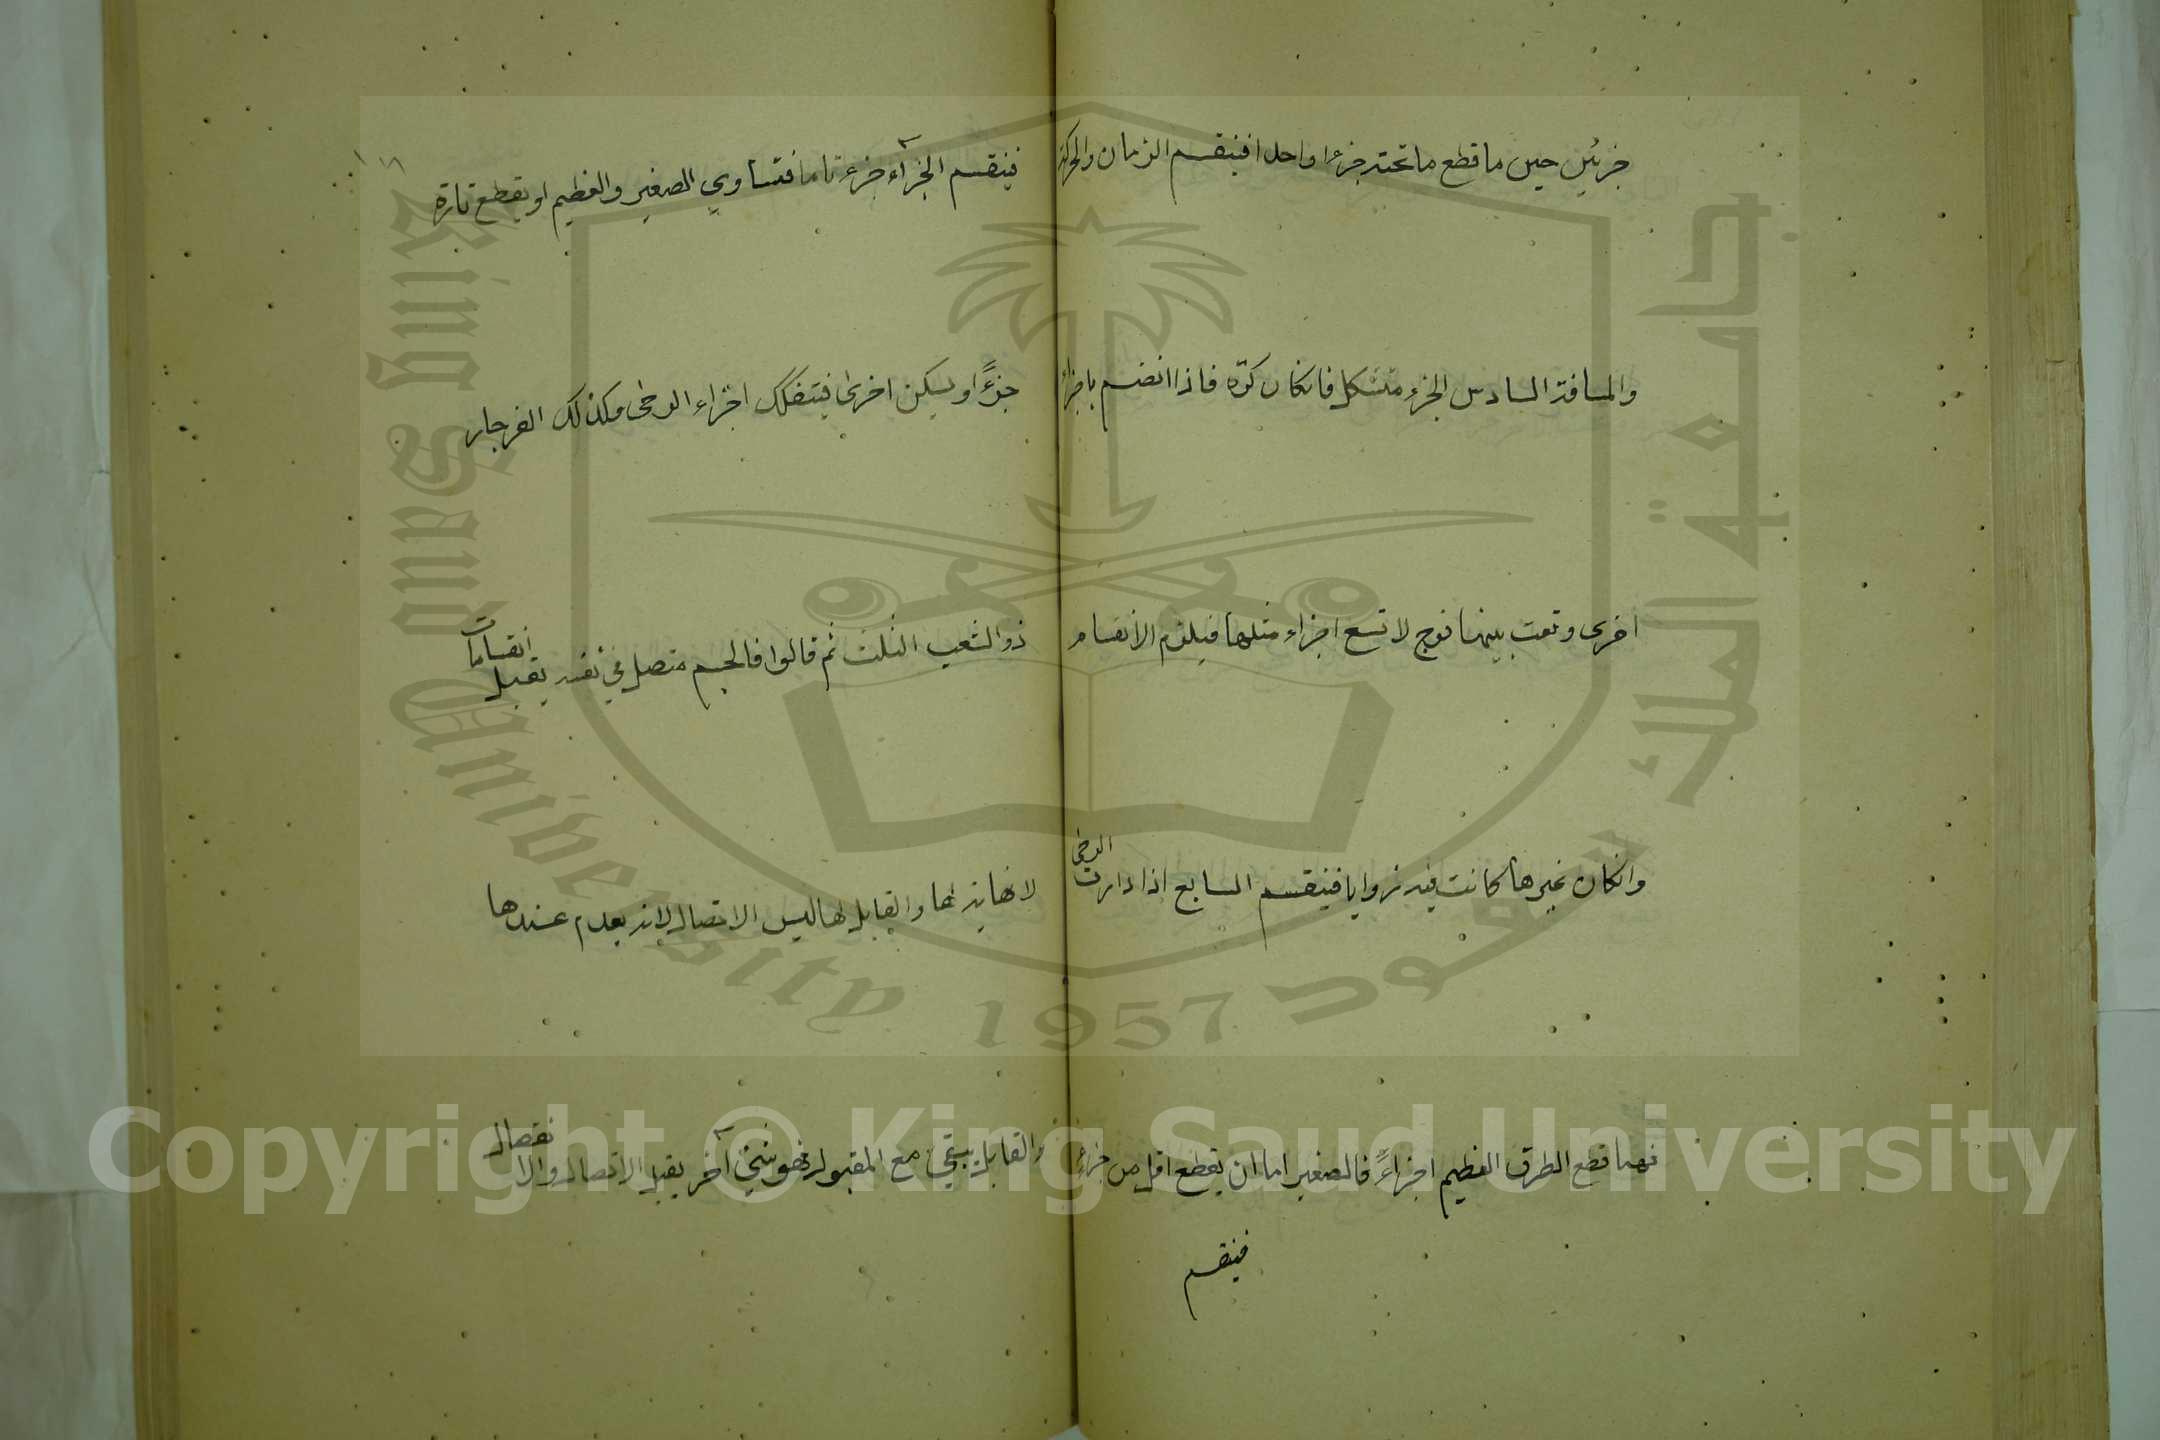 جزئين حين ما قطع ما تحته جزءا واحدا فينقسم الزمان والحركة
والمسافة السادس الجزء متشكل فانكان كرة فاذا انضم باجزاء
اخرى وقعت بينهما فرج لا تسع اجزاء مثلها فيلزم الانقسام
وانكان غيرها كانت فيه زوايا فينقسم السابع اذا دارت الرحى
فهما قطع الطرق العظيم اجزاءً فالصغير اما ان يقطع اقل من جزء
فينقسم
فينقسم الجزآء جزء تاما فتساوي الصغير والعظيم او يقطع تارة
جزءً او يسكن اخرى فيتفكك اجزاء الرحى وكذلك الفرجار
ذو الشعب الثلث ثم قالوا فالجسم متصل في نفسه يقبل انقسامات
لا نهاية لها والقابل لها ليس الاتصال لانه يعدم عندها
والقابل يبقى مع المقبول فهو شئ آخر يقبل الاتصال والانفصال
Copyright © King Saud University
King Saud University 1957
جامعة الملك سعود